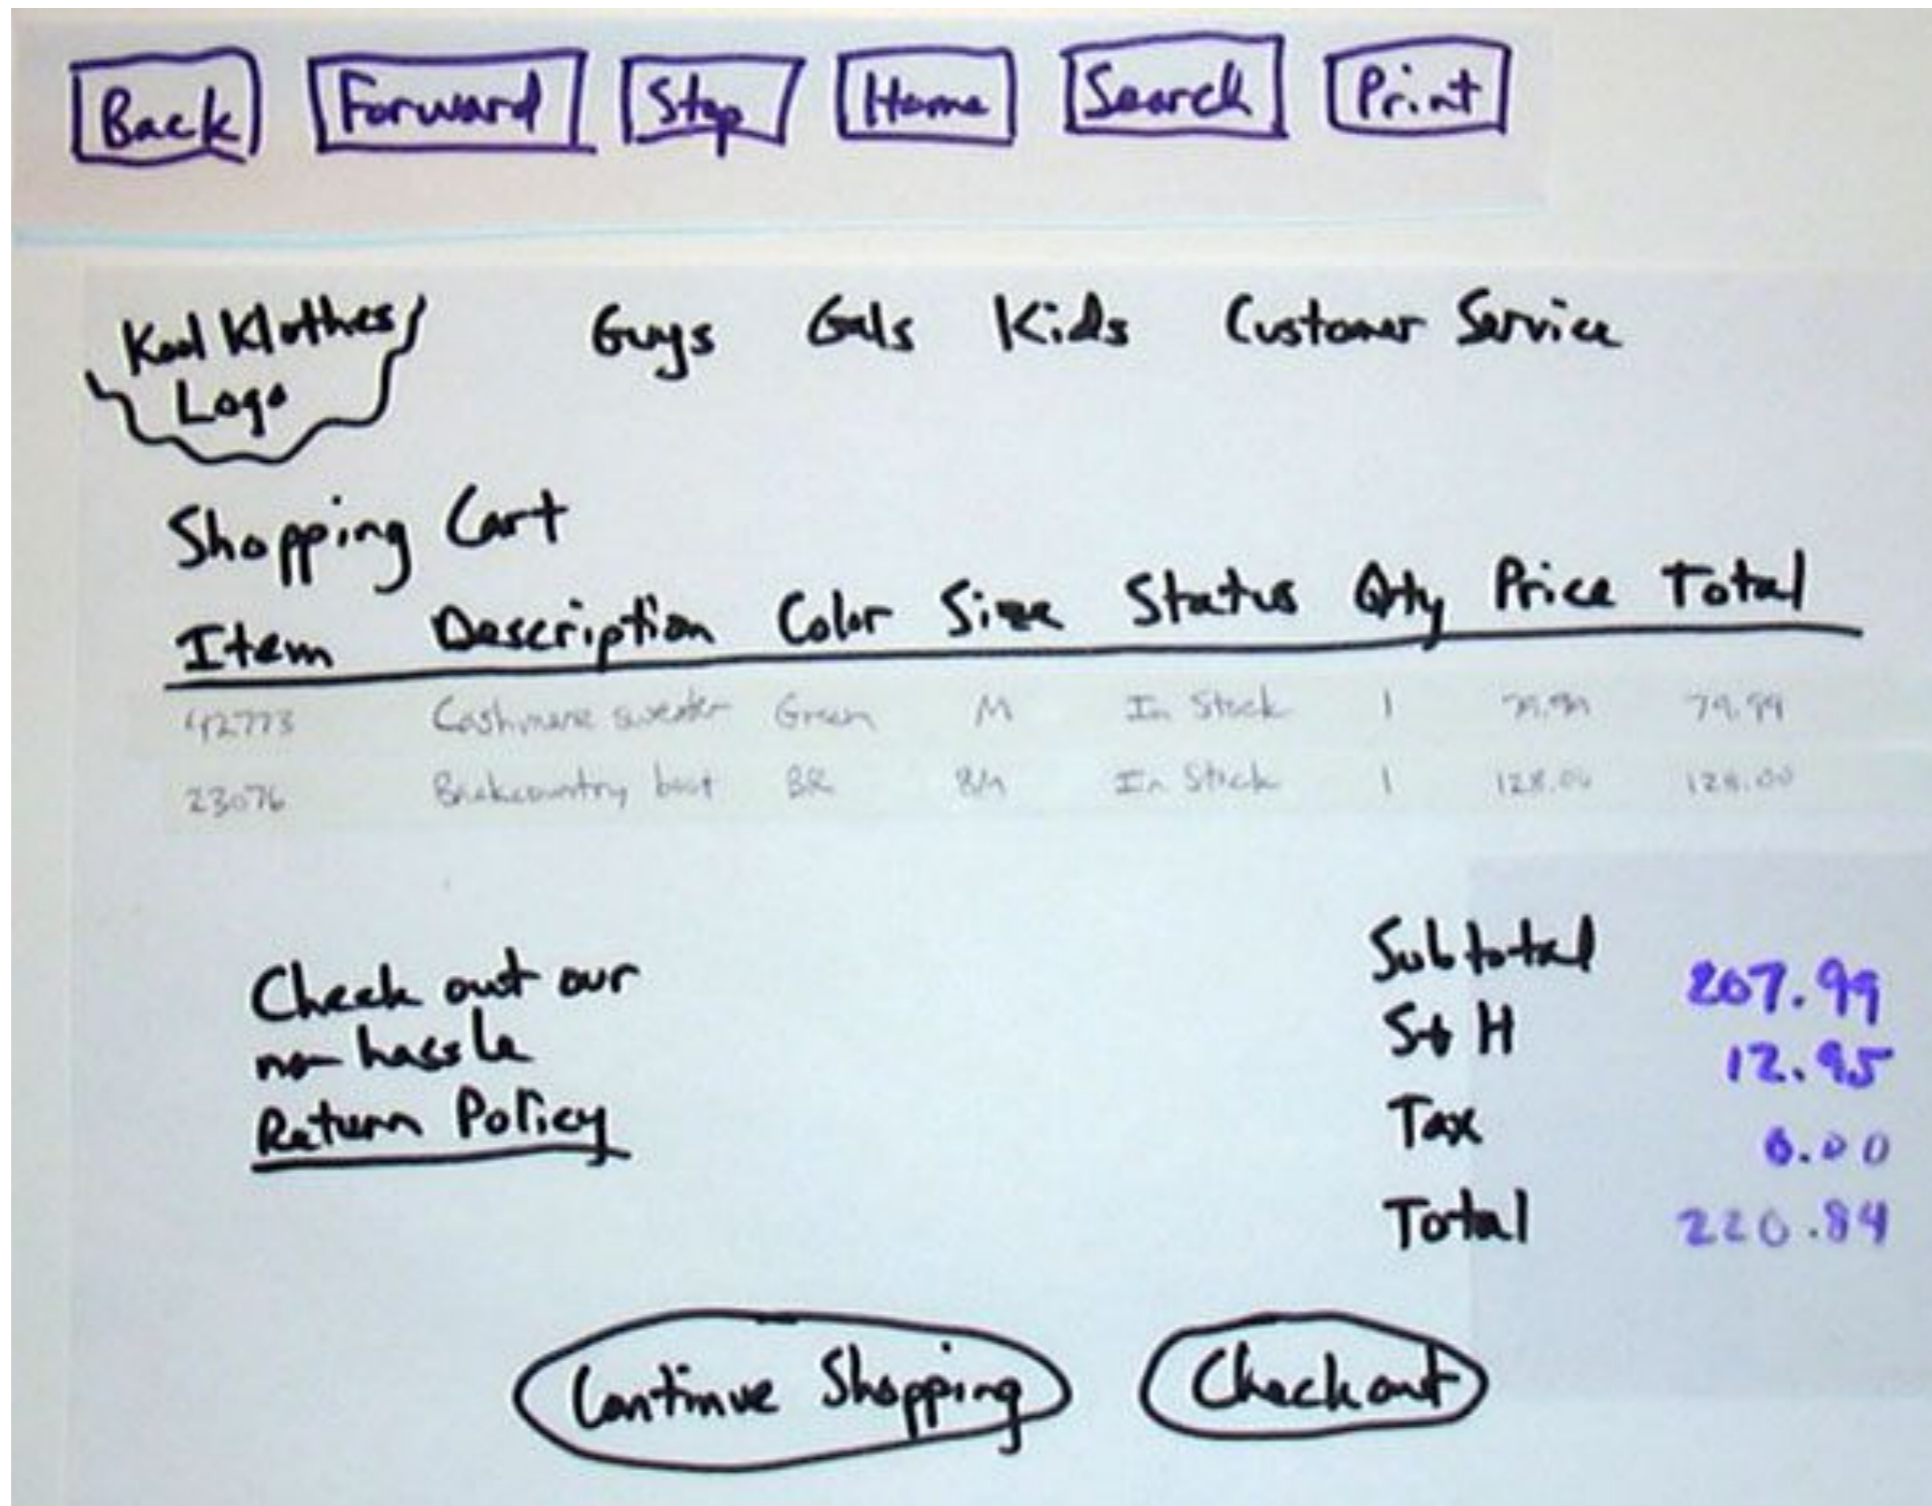 Back Forward Stop Home Search Print
Kool Klothes Guys Gals Kids Customer Service
Logo
Shopping Cart
Item Description Color Size Status Qty Price Total
42773 Cashmere sweater Green M In Stock 1 79.99 79.99
23076 Backcountry boot BR 8M In Stock 1 128.00 128.00
Check out our
no hassle
Return Policy
Subtotal 207.99
S+H 12.95
Tax 0.00
Total 220.84
Continue Shopping Checkout